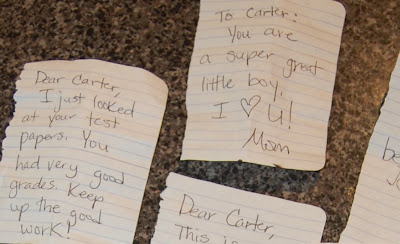 Dear Carter,
I just looked
at your test
papers. You
had very good
grades. Keep
up the good
work!
To Carter:
You are
a super great
little boy.
I ♡ U!
Mom
Dear Carter,
This is
be